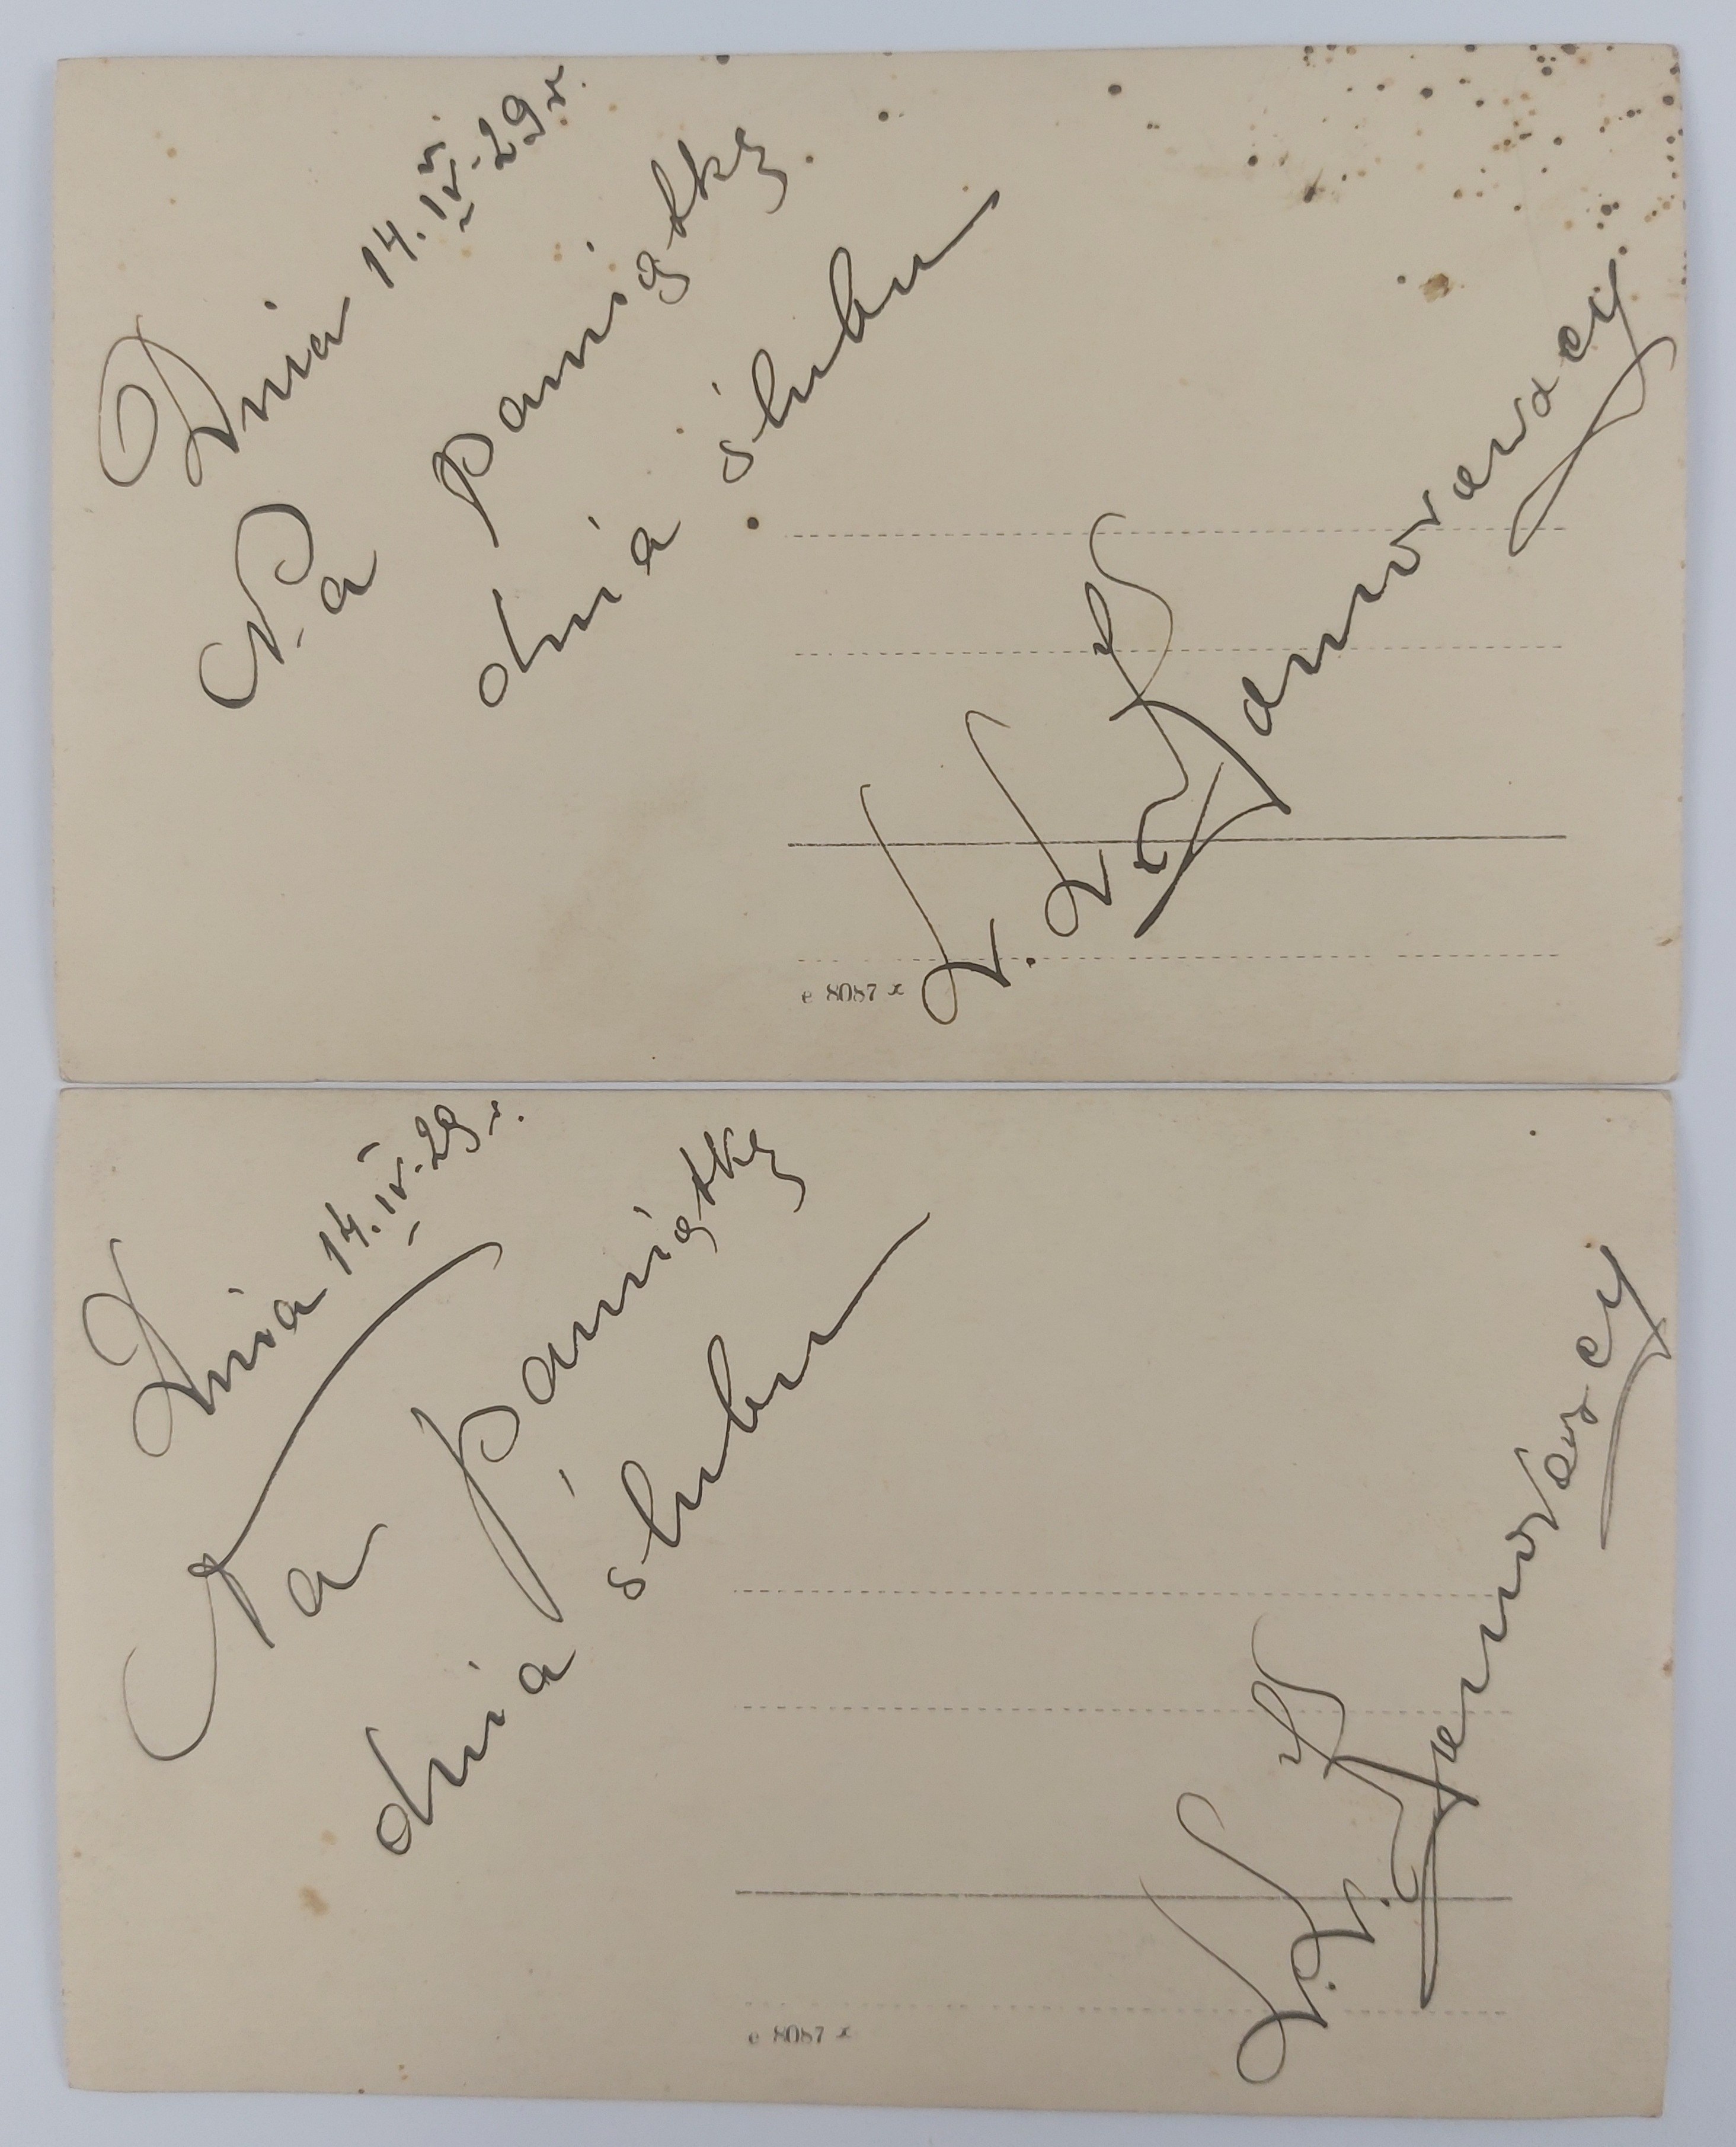 Dnia 14. IV. 29 r.
Na pamiątkę
dnia ślubu
e 8087 x
Dnia 14. IV. 29 r.
Na pamiątkę
dnia ślubu
e 8087 x